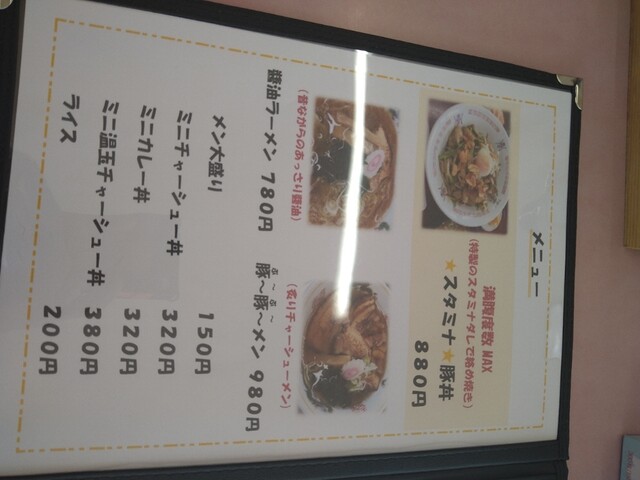 メニュー
満腹度数 MAX
(特製のスタミナダレで絡め焼き)
★スタミナ★豚丼
880円
(昔ながらのあっさり醤油)
醤油ラーメン 780円
(炙りチャーシューメン)
ぶ~ ぶ~
豚~豚~メン 980円
メン大盛り 150円
ミニチャーシュー丼 320円
ミニカレー丼 320円
ミニ温玉チャーシュー丼 380円
ライス 200円